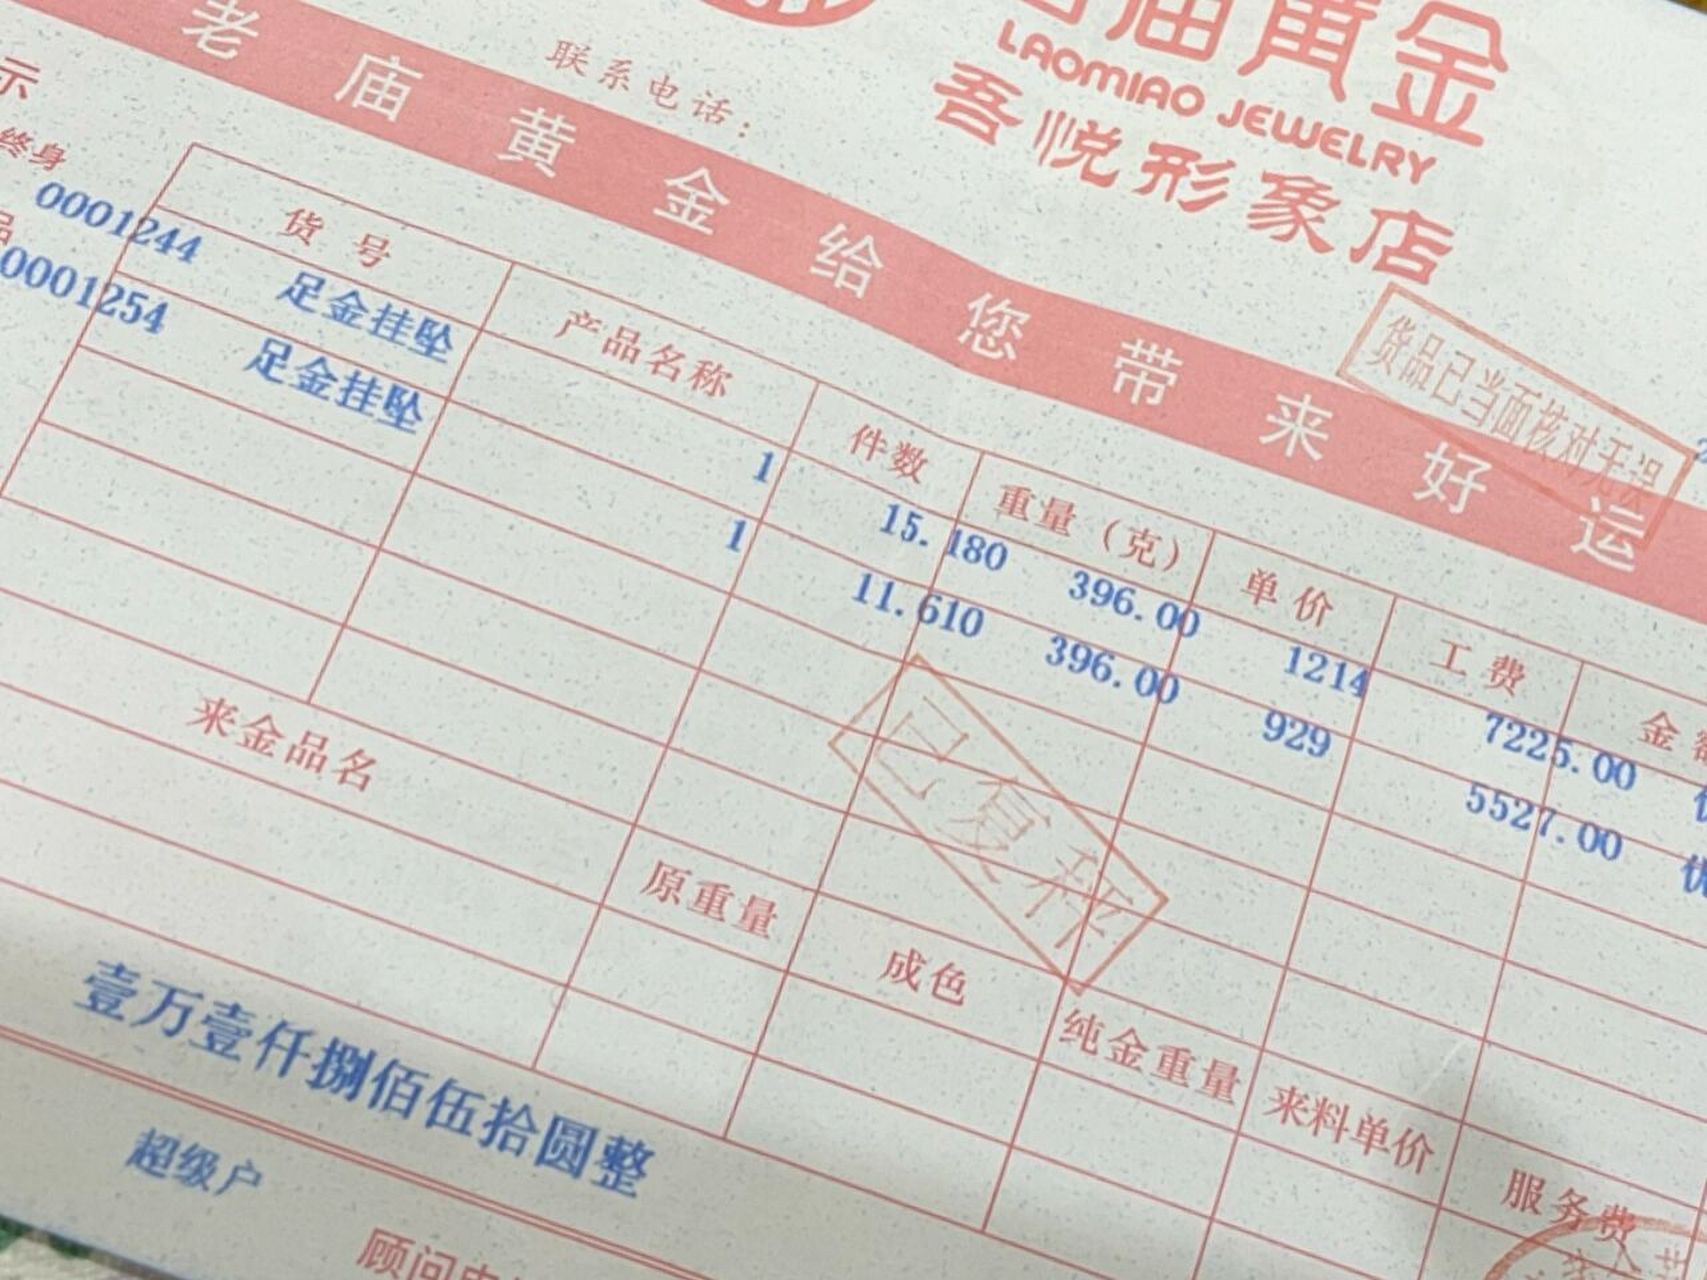 老庙黄金
LAOMIAO JEWELRY
吾悦形象店
联系电话：
老庙黄金给您带来好运
货品已当面核对无误
示
终身
品
货号 产品名称 件数 重量（克） 单价 工费 金额
0001244 足金挂坠 1 15.180 396.00 1214 7225.00
0001254 足金挂坠 1 11.610 396.00 929 5527.00 优
已复秤
来金品名 原重量 成色 纯金重量 来料单价 服务费
壹万壹仟捌佰伍拾圆整
超级户
顾问